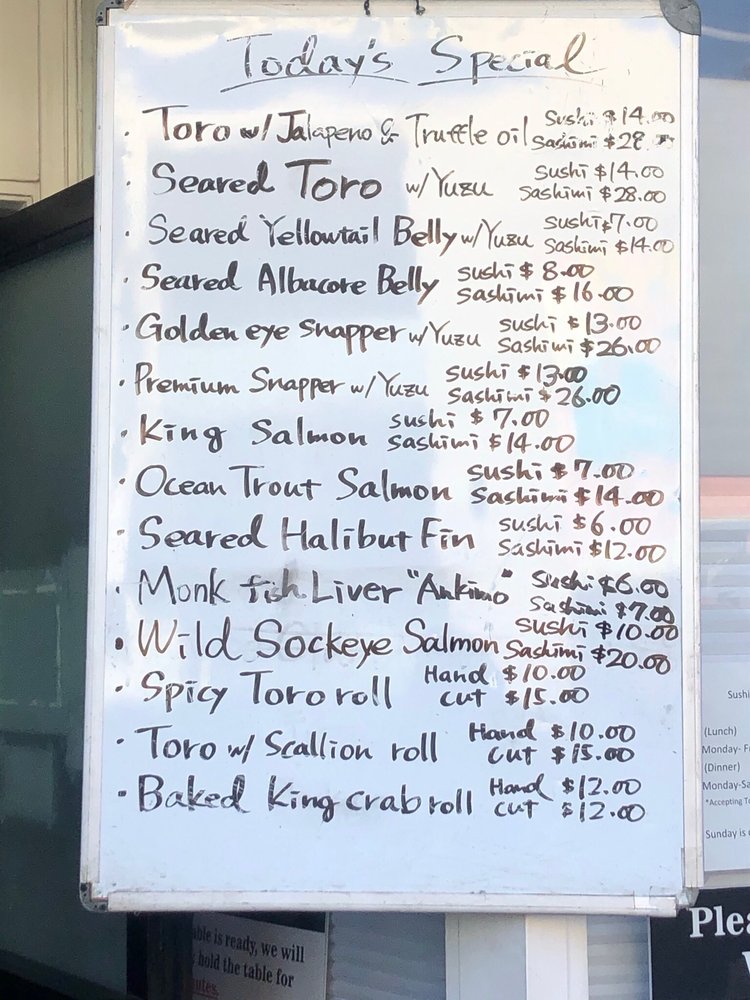 Today's Special
· Toro w/ Jalapeno & Truffle oil sushi $14.00
sashimi $28.
· Seared Toro w/ Yuzu sushi $14.00
sashimi $28.00
· Seared Yellowtail Belly w/Yuzu sushi $7.00
sashimi $14.00
· Seared Albacore Belly sushi $8.00
sashimi $16.00
· Golden eye snapper w/Yuzu sushi $13.00
sashimi $26.00
· Premium Snapper w/Yuzu sushi $13.00
sashimi $26.00
· King Salmon sushi $7.00
sashimi $14.00
· Ocean Trout Salmon sushi $7.00
sashimi $14.00
· Seared Halibut Fin sushi $6.00
sashimi $12.00
· Monk fish Liver "Ankimo" sushi $6.00
sashimi $7.00
· Wild Sockeye Salmon sushi $10.00
sashimi $20.00
· Spicy Toro roll Hand $10.00
cut $15.00
· Toro w/ Scallion roll Hand $10.00
cut $15.00
· Baked King crab roll Hand $12.00
cut $12.00
Sushi
(Lunch)
Monday- F
(Dinner)
Monday-Sa
*Accepting
Sunday is
able is ready, we will
hold the table for
Plea